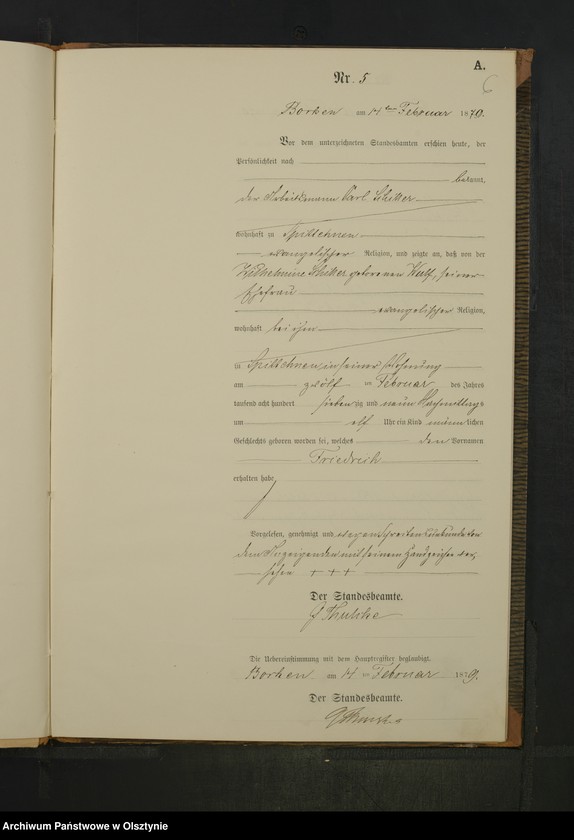 A.
6
Nr. 5
Borken am 14ten Februar 1879.
Vor dem unterzeichneten Standesbeamten erschien heute, der
Persönlichkeit nach
bekannt,
der Arbeitsmann Carl
wohnhaft zu Spittehnen
evangelischer Religion, und zeigte an, daß von der
Wilhelmine geborenen seiner
Ehefrau
evangelischer Religion,
wohnhaft bei ihm
in Spittehnen in seiner Wohnung
am zwölften Februar des Jahres
tausend acht hundert siebenzig und neun Nachmittags
um elf Uhr ein Kind männlichen
Geschlechts geboren worden sei, welches den Vornamen
Friedrich
erhalten habe.
Vorgelesen, genehmigt und wegen Schreibensunkunde von
dem Anzeigenden mit seinem Handzeichen ver-
sehen + + +
Der Standesbeamte.
Die Uebereinstimmung mit dem Hauptregister beglaubigt.
Borken am 14ten Februar 1879.
Der Standesbeamte.
Archiwum Państwowe w Olsztynie